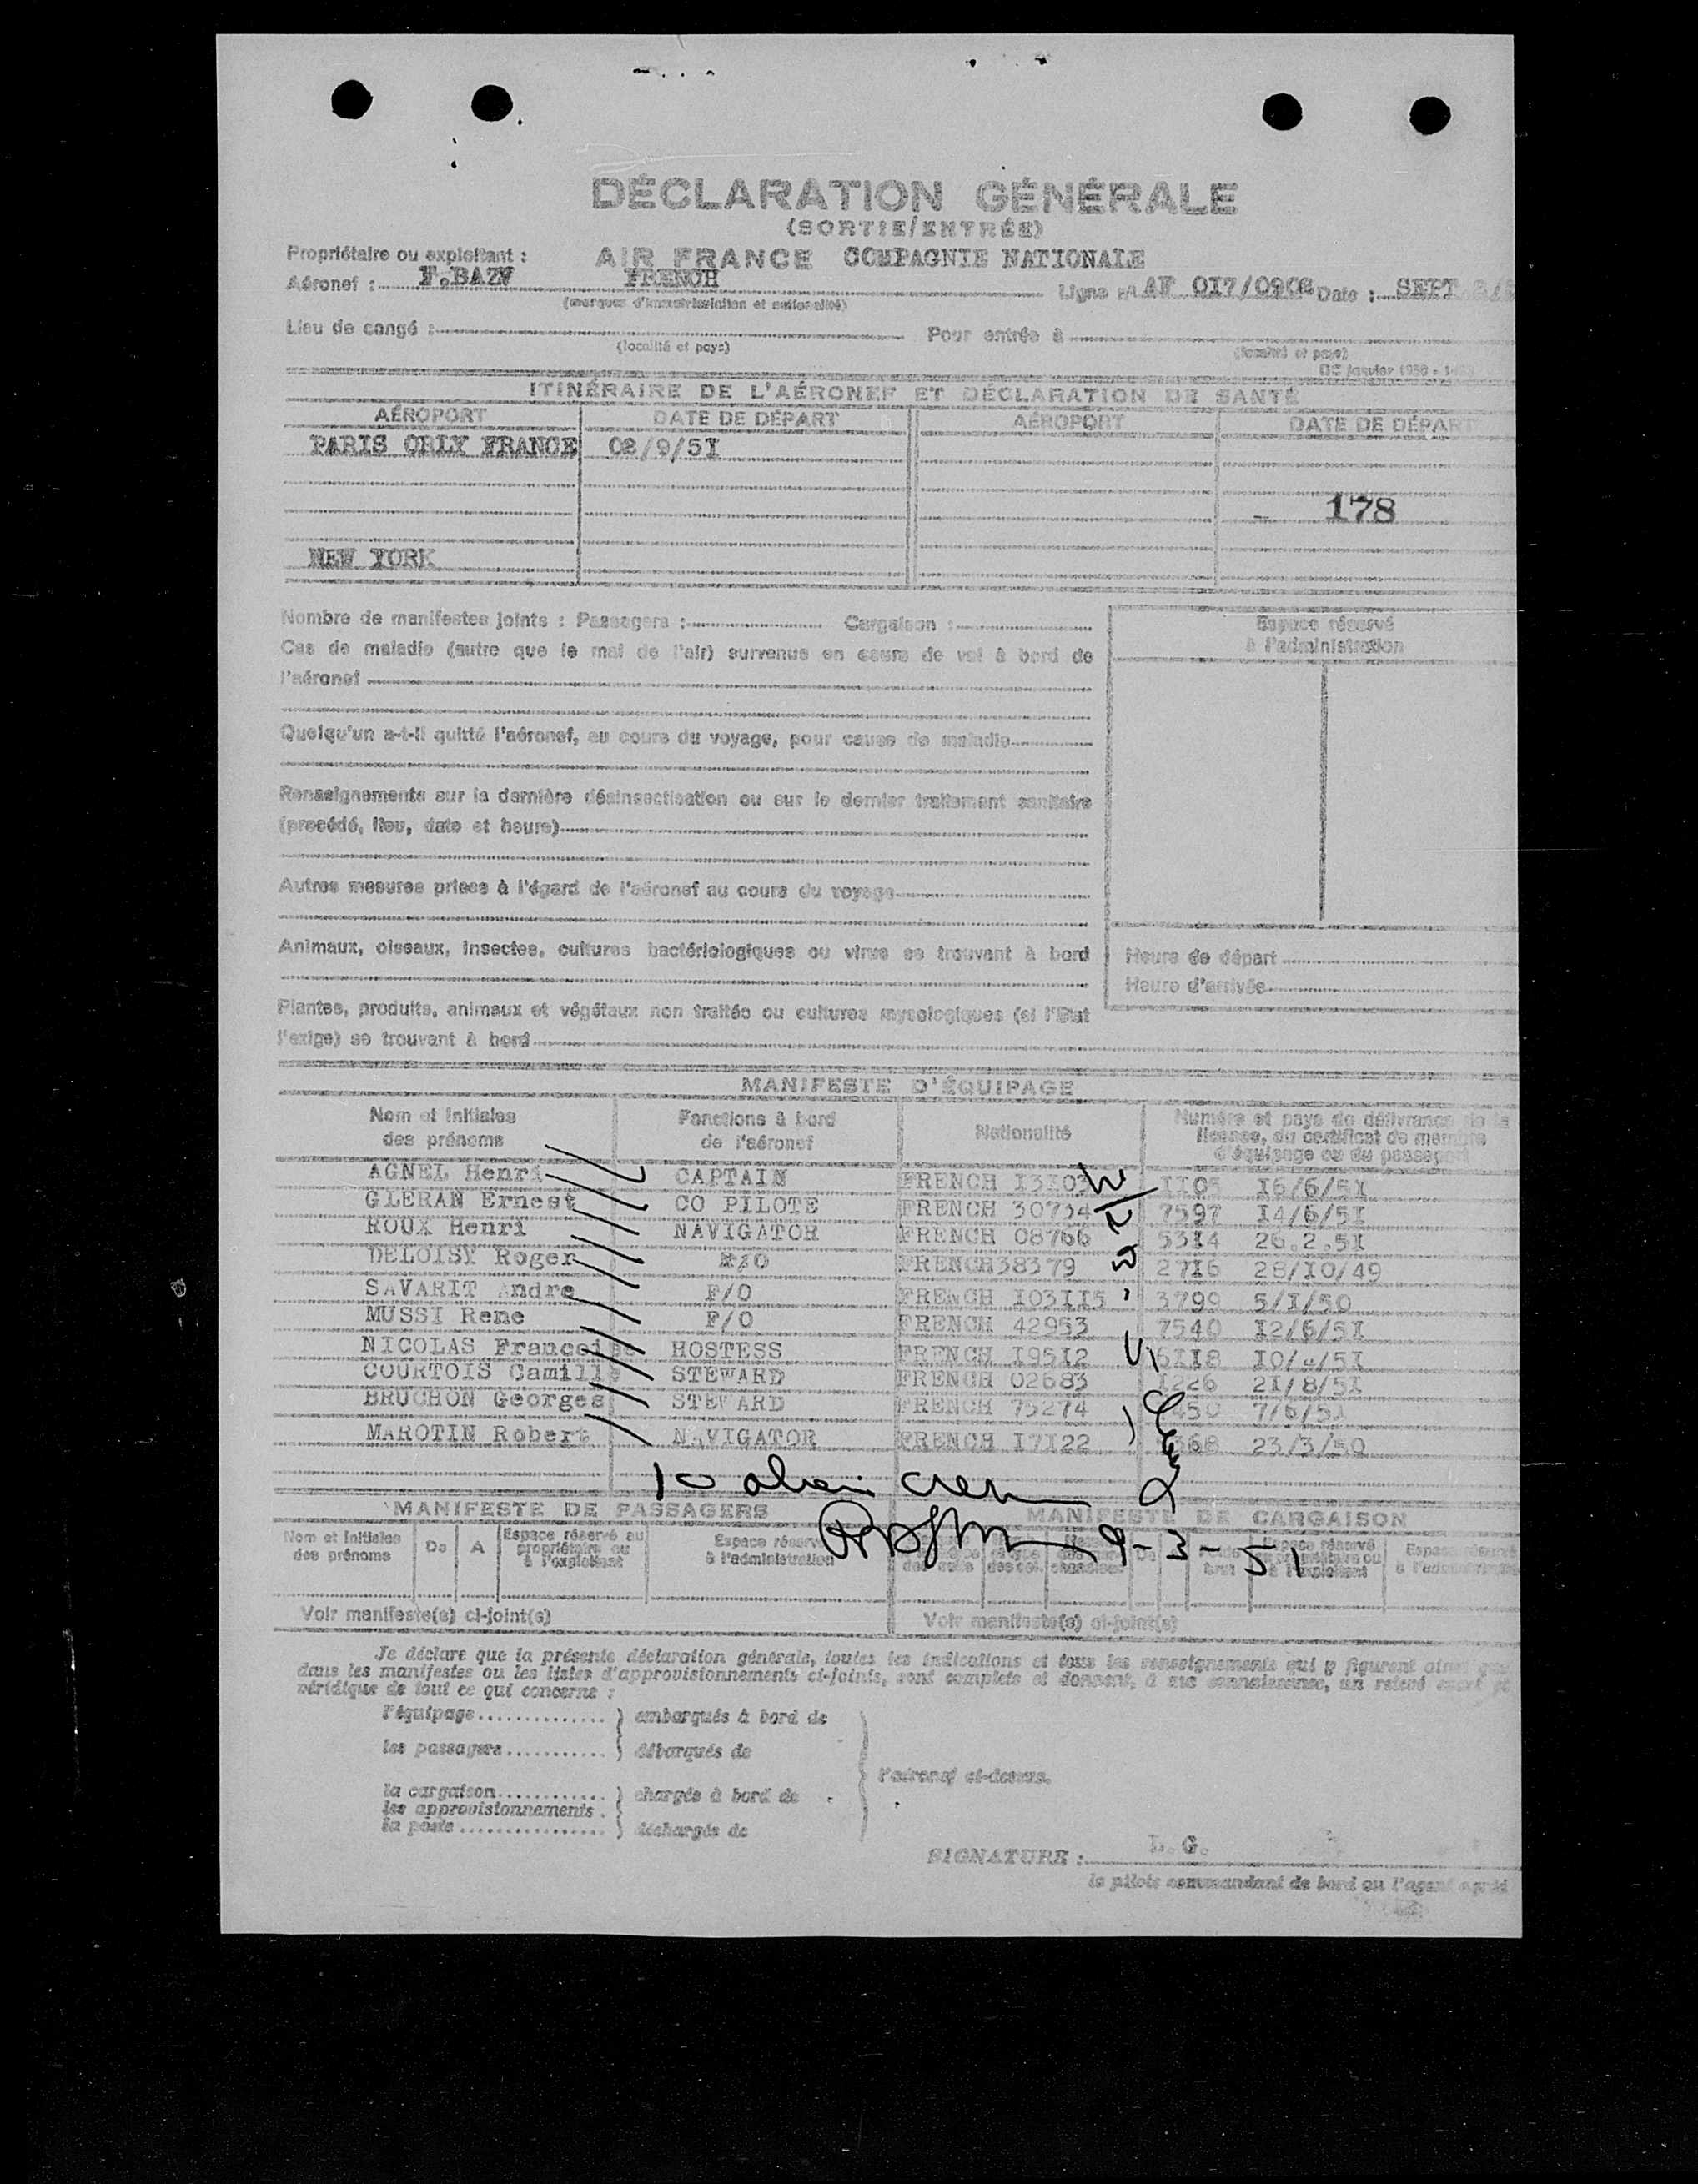 DÉCLARATION GÉNÉRALE
(SORTIE/ENTRÉE)
Propriétaire ou exploitant : AIR FRANCE COMPAGNIE NATIONALE
Aéronef : F.BAZN FRENCH Ligne n° AF 0I7/0902 Date : SEPT
(marques d'immatriculation et nationalité)
Lieu de congé : Pour entrée à
(localité et pays) (localité et pays)
DC janvier 1950
ITINÉRAIRE DE L'AÉRONEF ET DÉCLARATION DE SANTÉ
AÉROPORT DATE DE DÉPART AÉROPORT DATE DE DÉPART
PARIS ORLY FRANCE 02/9/5I
178
NEW YORK
Nombre de manifestes joints : Passagers : Cargaison :
Espace réservé
à l'administration
Cas de maladie (autre que le mal de l'air) survenus en cours de vol à bord de
l'aéronef
Quelqu'un a-t-il quitté l'aéronef, au cours du voyage, pour cause de maladie
Renseignements sur la dernière désinsectisation ou sur le dernier traitement sanitaire
(procédé, lieu, date et heure)
Autres mesures prises à l'égard de l'aéronef au cours du voyage
Animaux, oiseaux, insectes, cultures bactériologiques ou virus se trouvant à bord
Heure de départ
Heure d'arrivée
Plantes, produits, animaux et végétaux non traités ou cultures mycologiques (si l'Etat
l'exige) se trouvant à bord
MANIFESTE D'ÉQUIPAGE
Nom et initiales Fonctions à bord Nationalité Numéro et pays de délivrance de la
des prénoms de l'aéronef licence, du certificat de membre
d'équipage ou du passeport
AGNEL Henri CAPTAIN FRENCH I3I03 II05 I6/6/5I
GLERAN Ernest CO PILOTE FRENCH 30734 7597 I4/6/5I
ROUX Henri NAVIGATOR FRENCH 08766 53I4 26.2.5I
DELOISY Roger R/O FRENCH38379 27I6 28/I0/49
SAVARIT Andre F/O FRENCH I03II5 3799 5/I/50
MUSSI Rene F/O FRENCH 42953 7540 I2/6/5I
NICOLAS Francoise HOSTESS FRENCH I95I2 6II8 I0/4/5I
COURTOIS Camille STEWARD FRENCH 02683 I226 2I/8/5I
BRUCHON Georges STEWARD FRENCH 75274 450 7/6/5I
MAROTIN Robert NAVIGATOR FRENCH I7I22 368 23/3/50
10 alien crew
9-3-51
MANIFESTE DE PASSAGERS MANIFESTE DE CARGAISON
Nom et initiales De A Espace réservé au Espace réservé
des prénoms propriétaire ou à l'administration
à l'exploitant
Voir manifeste(s) ci-joint(s) Voir manifeste(s) ci-joint(s)
Je déclare que la présente déclaration générale, toutes les indications et tous les renseignements qui y figurent ainsi que
dans les manifestes ou les listes d'approvisionnements ci-joints, sont complets et donnent, à ma connaissance, un relevé exact et
véridique de tout ce qui concerne :
l'équipage } embarqués à bord de
les passagers } débarqués de
l'aéronef ci-dessus.
la cargaison } chargés à bord de
les approvisionnements
la poste } déchargés de
SIGNATURE : L. G.
le pilote commandant de bord ou l'agent agréé